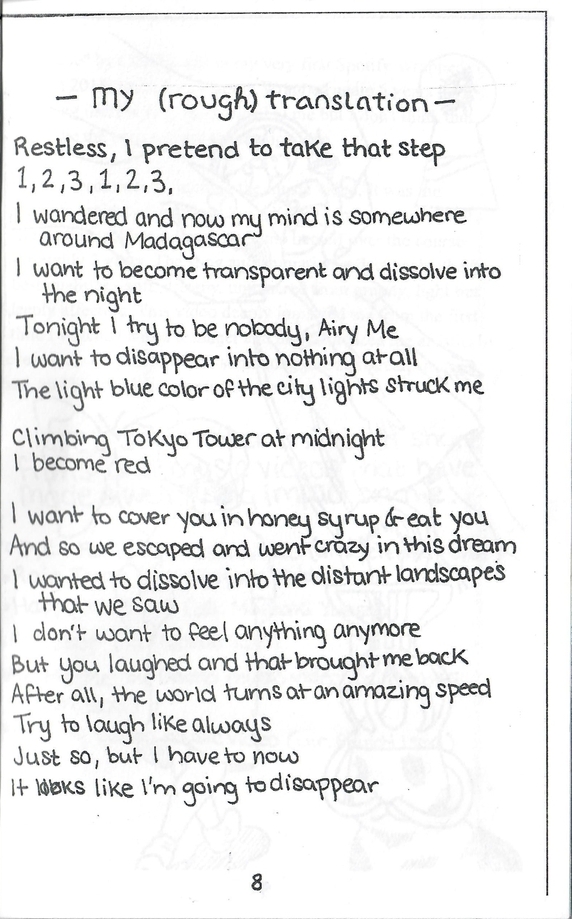 — My (rough) translation —
Restless, I pretend to take that step
1,2,3,1,2,3,
I wandered and now my mind is somewhere
around Madagascar
I want to become transparent and dissolve into
the night
Tonight I try to be nobody, Airy Me
I want to disappear into nothing at all
The light blue color of the city lights struck me
Climbing Tokyo Tower at midnight
I become red
I want to cover you in honey syrup & eat you
And so we escaped and went crazy in this dream
I wanted to dissolve into the distant landscapes
that we saw
I don't want to feel anything anymore
But you laughed and that brought me back
After all, the world turns at an amazing speed
Try to laugh like always
Just so, but I have to now
It looks like I'm going to disappear
8